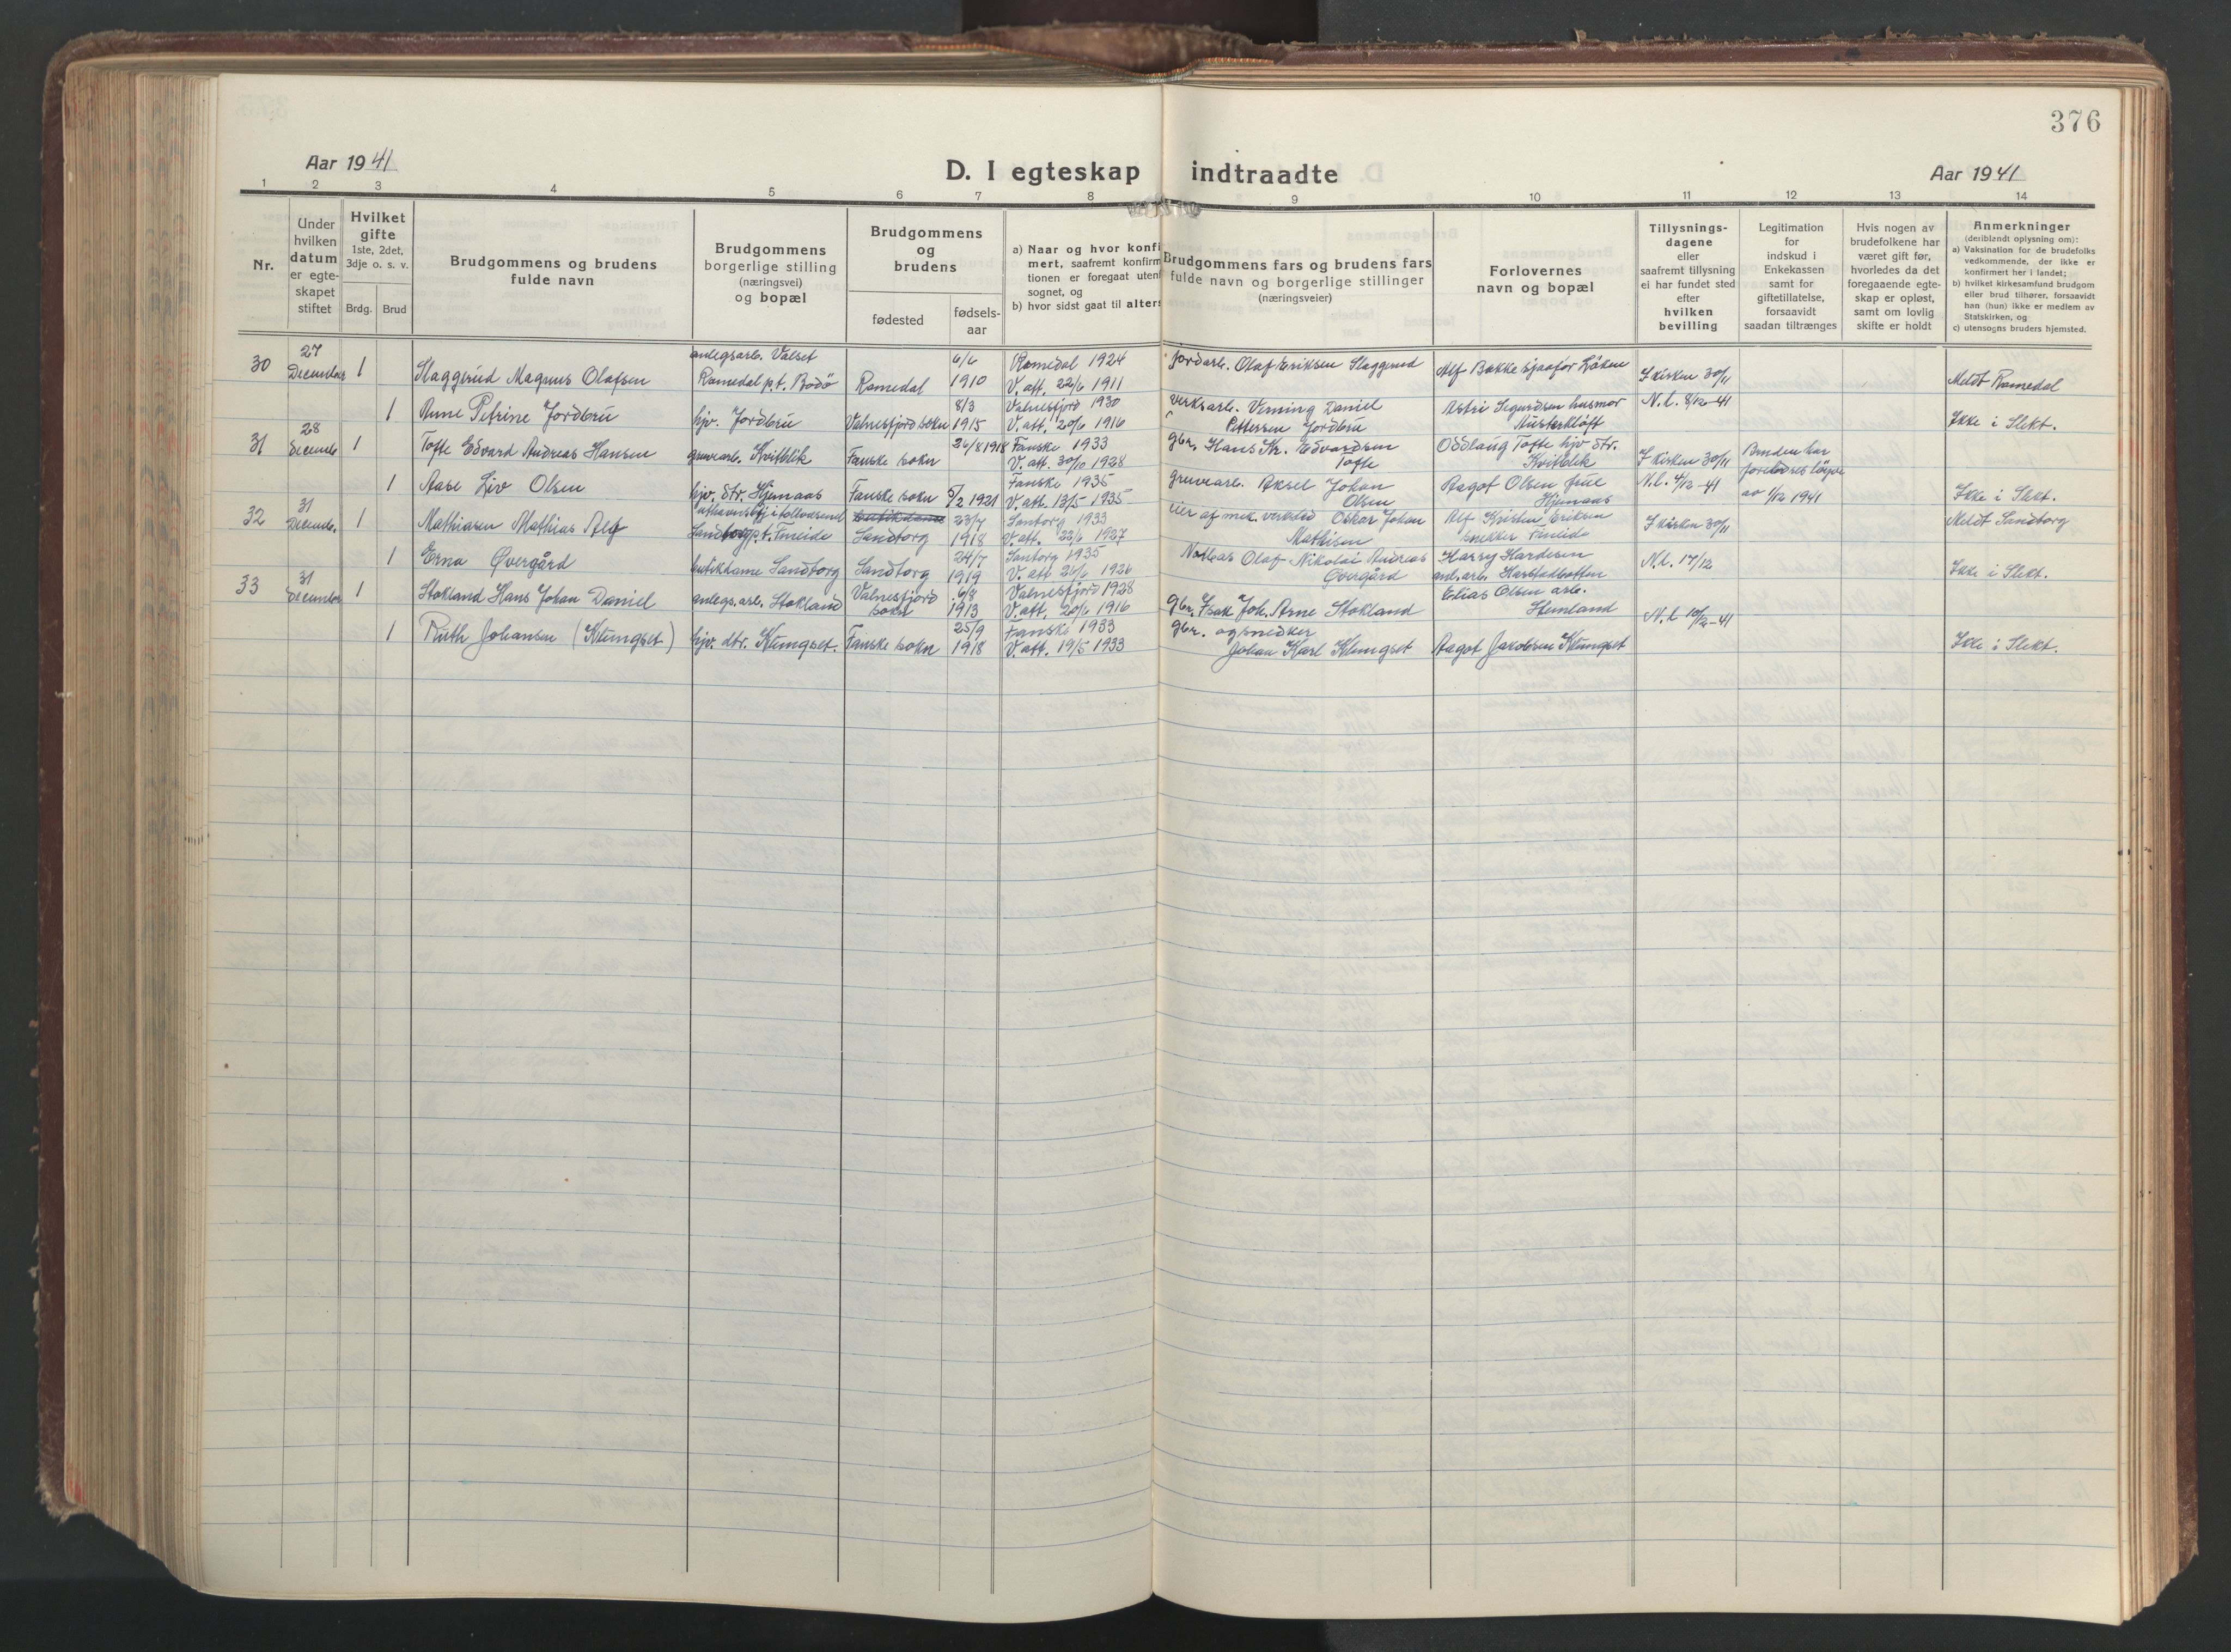 376
Aar 1941
D. I egteskap indtraadte
Aar 1941
1 2 3 4 5 6 7 8 9 10 11 12 13 14
Nr.
Under
hvilken
datum
er egte-
skapet
stiftet
Hvilket
gifte
1ste, 2det,
3dje o. s. v.
Brdg. Brud
Brudgommens og brudens
fulde navn
Brudgommens
borgerlige stilling
(næringsvei)
og bopæl
Brudgommens
og
brudens
fødested
fødsels-
aar
a) Naar og hvor konfi
mert, saafremt konfirm
tionen er foregaat uten
sognet, og
b) hvor sidst gaat til alters
Brudgommens fars og brudens fars
fulde navn og borgerlige stillinger
(næringsveier)
Forlovernes
navn og bopæl
Tillysnings-
dagene
eller
saafremt tillysning
ei har fundet sted
efter
hvilken
bevilling
Legitimation
for
indskud i
Enkekassen
samt for
giftetillatelse,
forsaavidt
saadan tiltrænges
Hvis nogen av
brudefolkene har
været gift før,
hvorledes da det
foregaaende egte-
skap er opløst,
samt om lovlig
skifte er holdt
Anmerkninger
(deriblandt oplysning om):
a) Vaksination for de brudefolks
vedkommende, der ikke er
konfirmert her i landet;
b) hvilket kirkesamfund brudgom
eller brud tilhører, forsaavidt
han (hun) ikke er medlem av
Statskirken, og
c) utensogns bruders hjemsted.
30
27
December
1
Slaggerud Magnus Olafsen
anlegsarb. Valset
Romedal p.t. Bodö
Romedal
6/6
1910
Romedal 1924
V. att. 22/6 1911
jordarb. Olaf Eriksen Slaggerud
Alf Bakke sjaafør Löken
I kirken 30/11
Meldt Romedal
1
Anne Petrine Jordbru
hjv. Jordbru
Valnesfjord sokn
8/3
1915
Valnesfjord 1930
V. att. 20/6 1916
verksarb. Venning Daniel
Pettersen Jordbru
Astri Sigurdsen husmor
Austerkløft
N.l. 8/12-41
Ikke i Slekt.
31
28
Decemb.
1
Tofte Edvard Andreas Hansen
gruvearb. Kvitblik
Fauske sokn
26/8 1918
Fauske 1933
V. att. 30/10 1928
gbr. Hans Kr. Edvardsen
Tofte
Oddlaug Tofte hjv. dtr.
Kvitblik
I kirken 30/11
Bruden har
foreldres løyve
av 1/12 1941
1
Aase Liv Olsen
hjv. dtr. Hjemaas
Fauske sokn
5/2 1921
Fauske 1935
V. att. 13/5 1935
gruvearb. Aksel Johan
Olsen
Aagot Olsen frue
Hjemaas
N.l. 4/12-41
Ikke i Slekt.
32
31
Decemb.
1
Mathiasen Mathias Alf
Sandtorg p.t. Fineide
butikdame
Sandtorg
23/7
1918
Santorg 1933
V. att. 22/6 1927
eier af mek. verksted Oskar Johan
Mathisen
Alf Kristen Eriksen
snekker Fineide
I kirken 30/11
Meldt Sandtorg
1
Erna Øvergård
butikdame Sandtorg
Sandtorg
24/7
1919
Santorg 1935
V. att. 21/6 1926
Notbas Olaf Nikolai Andreas
Øvergård
Harry Hardesen
anl. arb. Harstadbotten
N.l. 17/12
Ikke i Slekt.
33
31
December
1
Stokland Hans Johan Daniel
anlegs.arb. Stokland
Valnesfjord
sokn
6/8
1913
Valnesfjord 1928
V. att. 20/6 1916
gbr. Isak Joh. Arne Stokland
Elias Olsen arb.
Stemland
N.l. 10/12-41
1
Ruth Johansen (Klungset)
hjv. dtr. Klungset.
Fauske sokn
25/9
1918
Fauske 1933
V. att. 19/5 1933
gbr. og snedker
Johan Karl Klungset
Aagot Jakobsen Klungset
Ikke i Slekt.